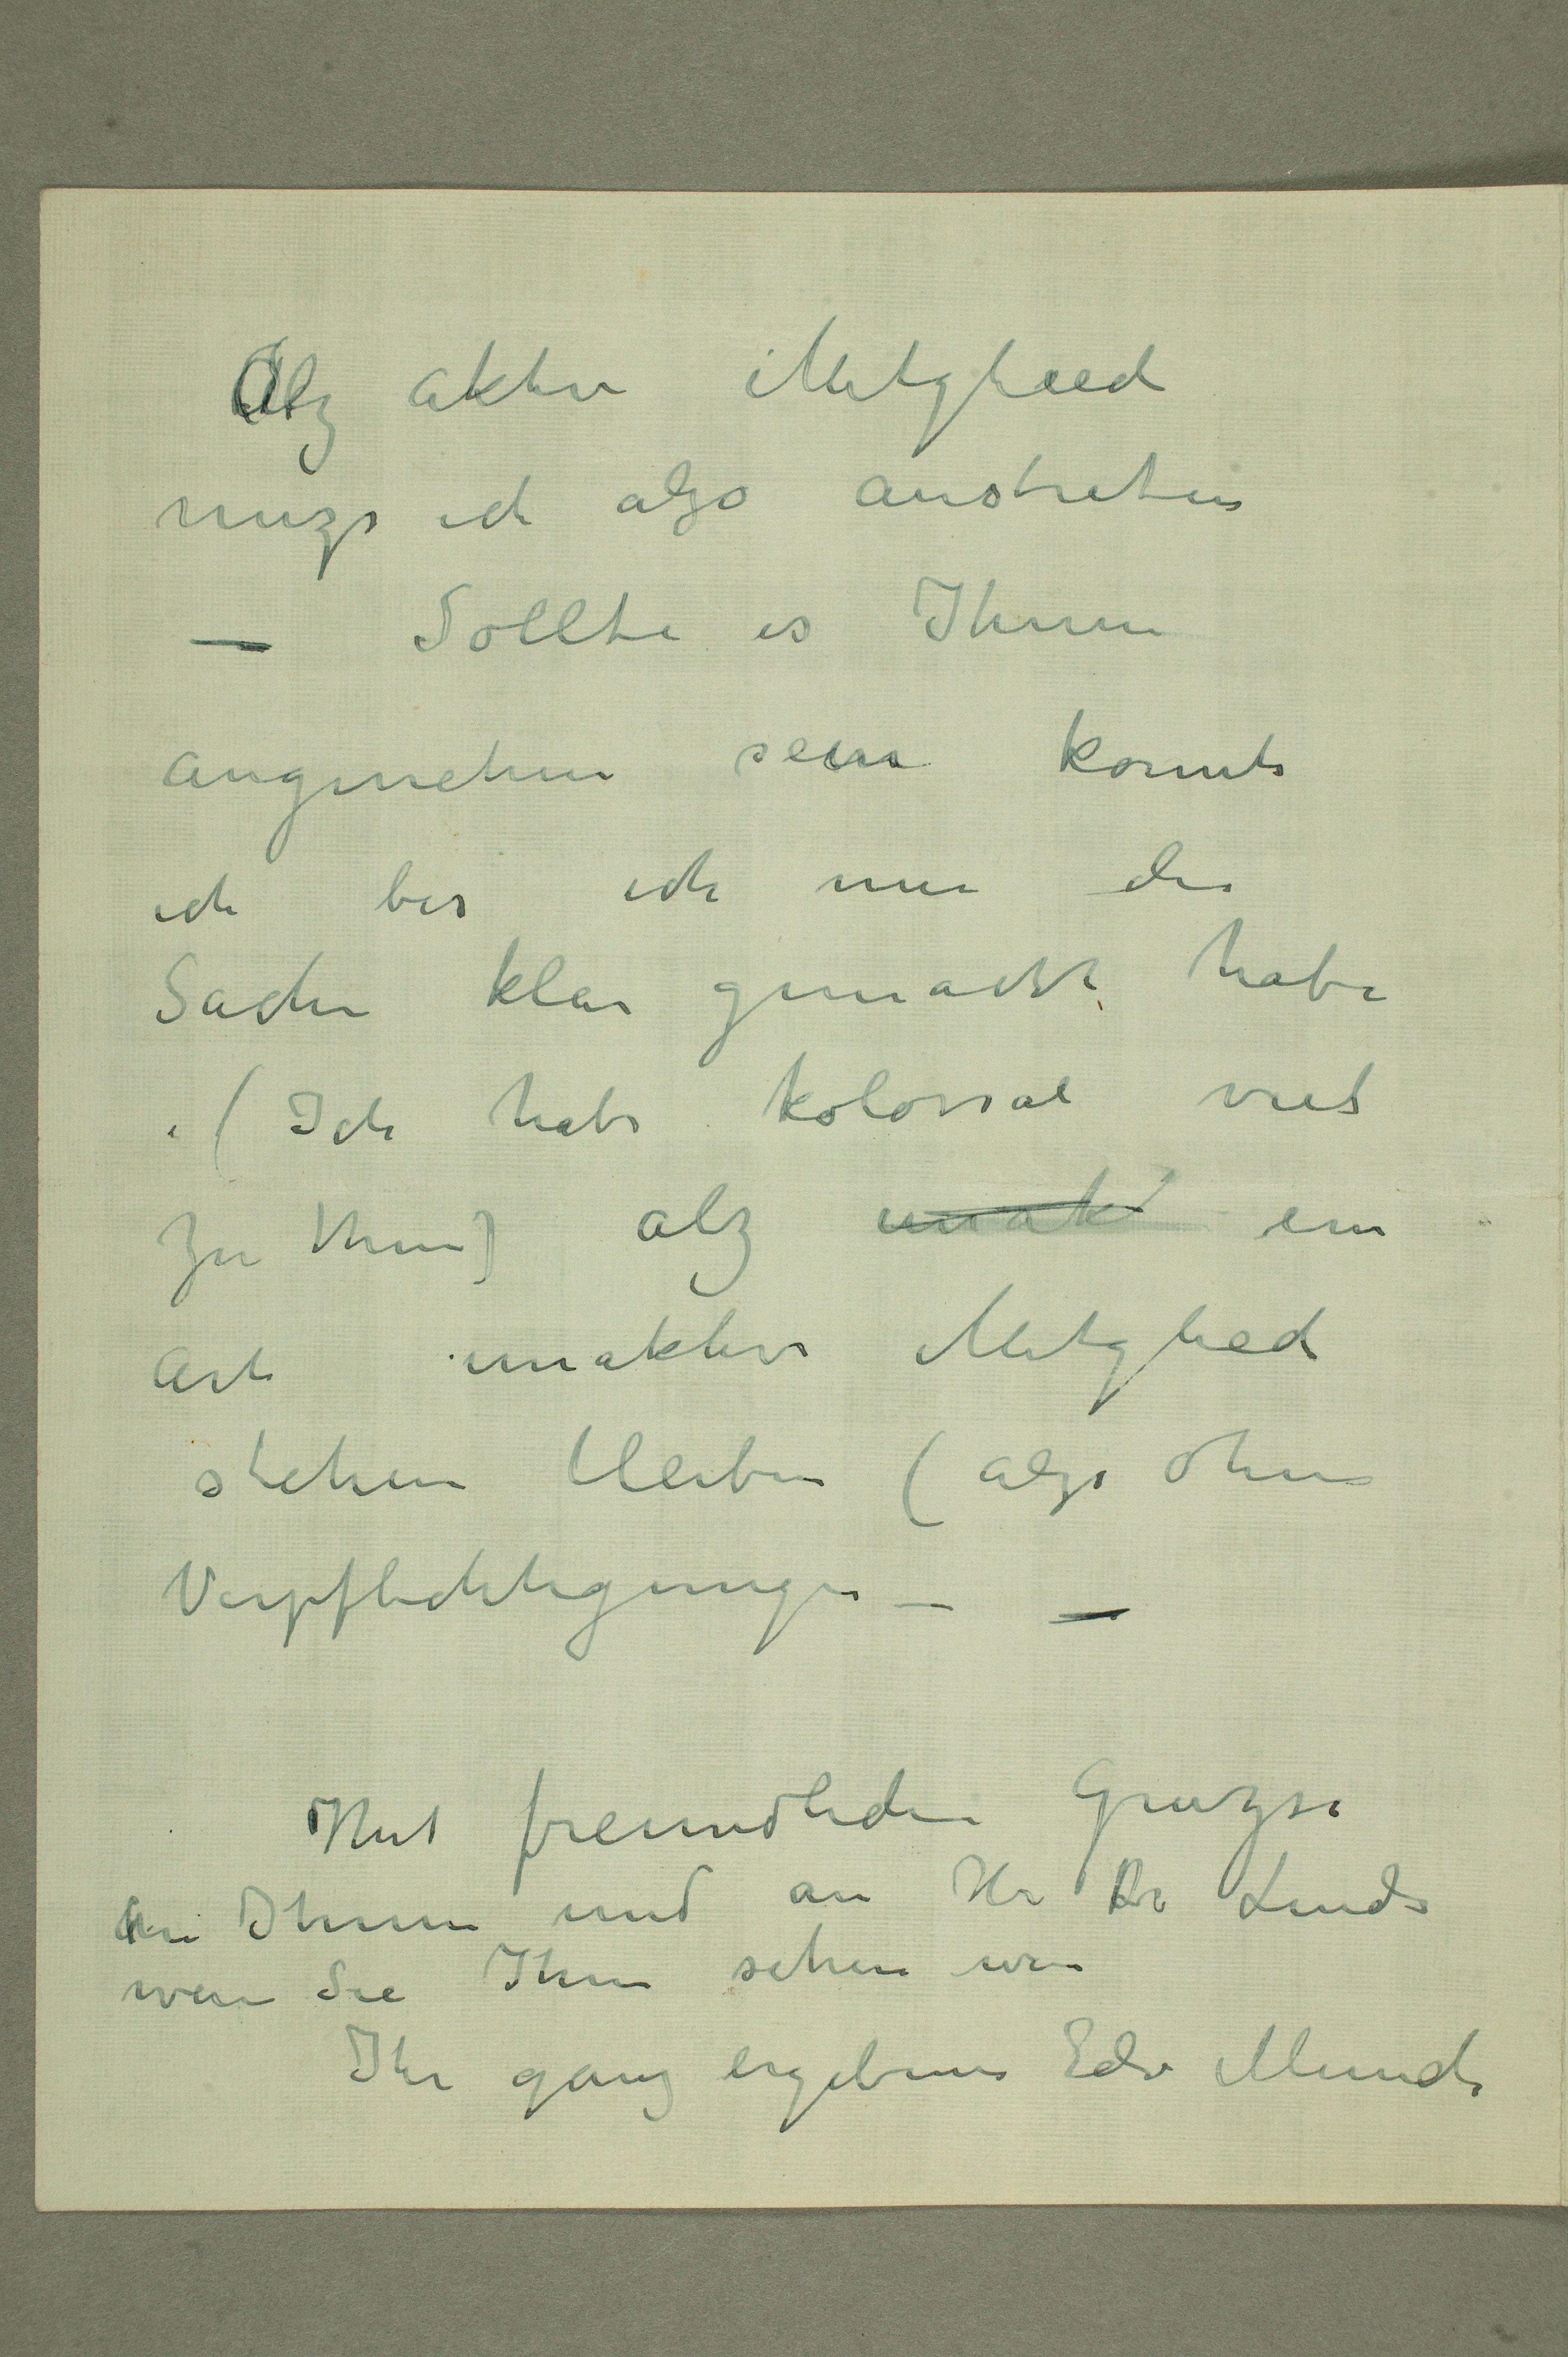 Alz aktiv Mitglied
muzs ich alzo austreten
— Sollte es Ihnen
angenehm sein konnte
ich bis ich mir die
Sache klar gemacht habe
. (Ich habe kolossal viel
zu thun) alz inak ein
Art inaktivs Mitglied
stehen bleiben (alzo ohne
Verpflichtigungen — —
Mit freundlichen Gruzse
an Ihnen und an Hr Dr Linde
wen Sie Ihm sehen
Ihr ganz ergebener Edv Munch